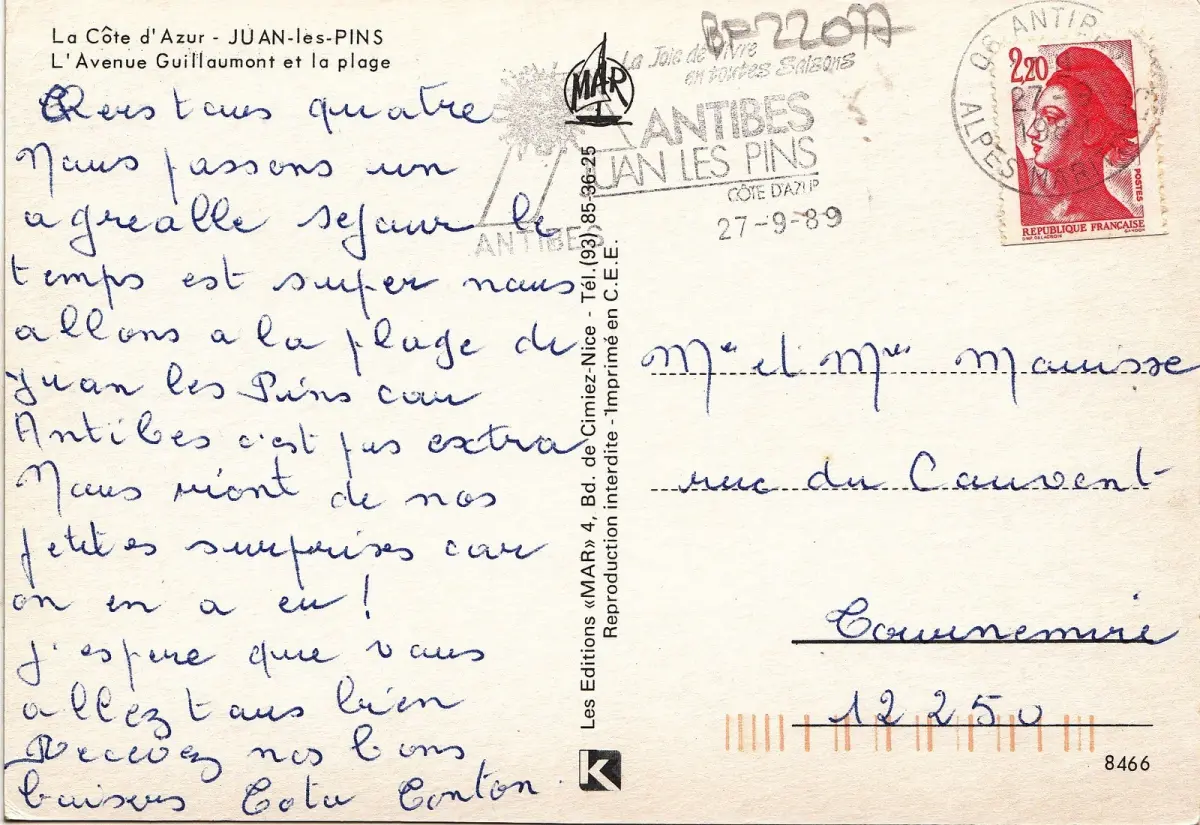 La Côte d'Azur - JUAN-les-PINS
L'Avenue Guillaumont et la plage
Chers tous quatre
Nous passons un
agréable sejour le
temps est super nous
allons a la plage de
Juan les Pins car
Antibes c'est pas extra
Nous riont de nos
petites surprises car
on en a eu !
j'espere que vous
allez tous bien
Recevez nos bons
baisers Tata Tonton
MAR
Les Editions «MAR» 4, Bd. de Cimiez-Nice - Tél.(93) 85-36-25
Reproduction interdite - Imprimé en C.E.E.
K
BF 22077
La Joie de Vivre
en toutes Saisons
ANTIBES
JUAN LES PINS
CÔTE D'AZUR
ANTIBES
27-9-89
06 ANTIBES
ALPES
2,20
POSTES
REPUBLIQUE FRANÇAISE
Mr et Mme Mauisse
rue du Couvent
Tournemire
12250
8466